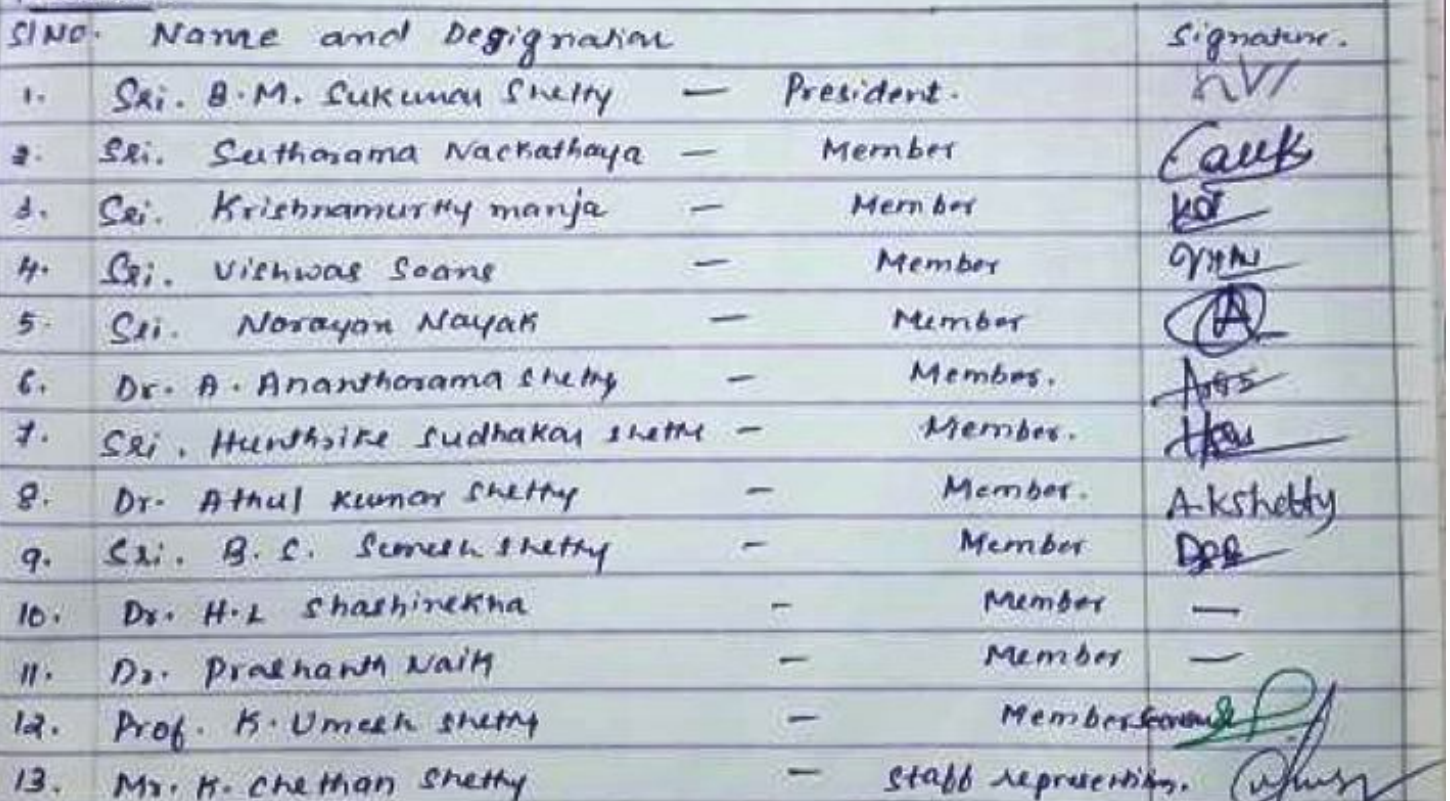 Sl No. Name and Designation Signature.
1. Sri. B.M. Sukumar Shetty — President.
2. Sri. Seetharama Nackathaya — Member
3. Sri. Krishnamurthy manja — Member
4. Sri. Vishwas Soans — Member
5. Sri. Narayan Nayak — Member
6. Dr. A. Anantharama Shetty — Member.
7. Sri. Sudhakar Shetty — Member.
8. Dr. Athul Kumar Shetty — Member. A.K Shetty
9. Sri. B.S. Shetty — Member
10. Dr. H.L Shashirekha — Member —
11. Dr. Prashanth Naik — Member —
12. Prof. K. Umesh Shetty — Member
13. Mr. K. Chethan Shetty — Staff